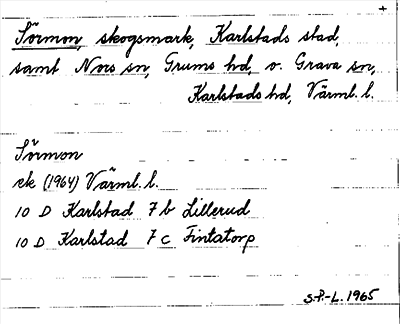 +
Sörmon, skogsmark, Karlstads stad,
samt Nors sn, Grums hd, o. Grava sn,
Karlstads hd, Värml. l.
Sörmon
ek (1964) Värml. l.
10 D Karlstad 7 b Lillerud
10 D Karlstad 7 c Fintatorp
S.P.-L. 1965